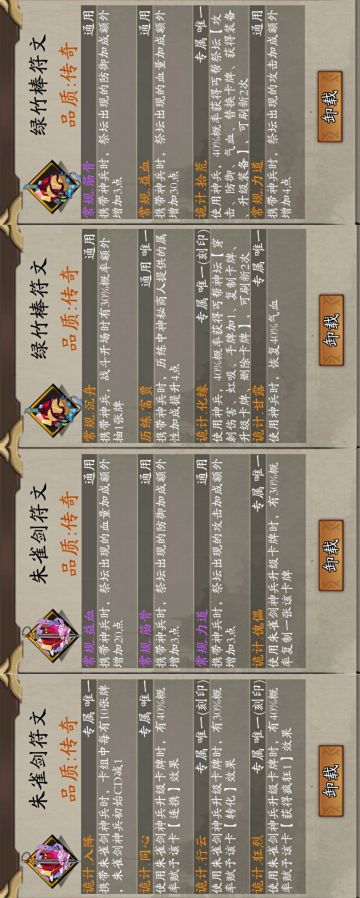 绿竹棒符文
品质:传奇
常规.筋骨 通用
携带神兵时，祭坛出现的防御加成额外
增加3点
常规.益血 通用
携带神兵时，祭坛出现的血量加成额外
增加30点
诡计.拾荒 专属 唯一
使用神兵，40%概率获得丐帮祭坛【攻
击、防御、气血、替换卡牌、获得装备
、升级装备】，可刷新2次
常规.力道 通用
携带神兵时，祭坛出现的攻击加成额外
增加4点
卸载
绿竹棒符文
品质:传奇
常规.沉丹 通用
携带神兵时，战斗开场时有30%概率额外
抽1张牌
历练.富贾 通用 唯一
携带神兵时，历练中神秘商人提供的属
性加成提升4点
诡计.化缘 专属 唯一(刻印)
使用神兵，40%概率获得丐帮神坛【穿
刺伤害、虹吸、手牌加1、复制卡牌、
升级卡牌、删除卡牌】，可刷新2次
诡计.甘露 专属 唯一
使用神兵时，恢复40%气血
卸载
朱雀剑符文
品质:传奇
常规.益血 通用
携带神兵时，祭坛出现的血量加成额外
增加20点
常规.筋骨 通用
携带神兵时，祭坛出现的防御加成额外
增加3点
常规.力道 通用
携带神兵时，祭坛出现的攻击加成额外
增加3点
诡计.傀儡 专属 唯一
使用朱雀剑神兵升级卡牌时，有30%概
率复制一张该卡牌
卸载
朱雀剑符文
品质:传奇
诡计.入阵 专属 唯一
携带朱雀剑神兵时，卡组中每有10张牌
，朱雀剑神兵初始CD减1
诡计.同心 专属 唯一
使用朱雀剑神兵升级卡牌时，有40%概
率赋予该卡【连携】效果
诡计.行云 专属 唯一(刻印)
使用朱雀剑神兵升级卡牌时，有30%概
率赋予该卡【转化】效果
诡计.狂烈 专属 唯一(刻印)
使用朱雀剑神兵升级卡牌时，有40%概
率赋予该卡【获得疯狂1】效果
卸载